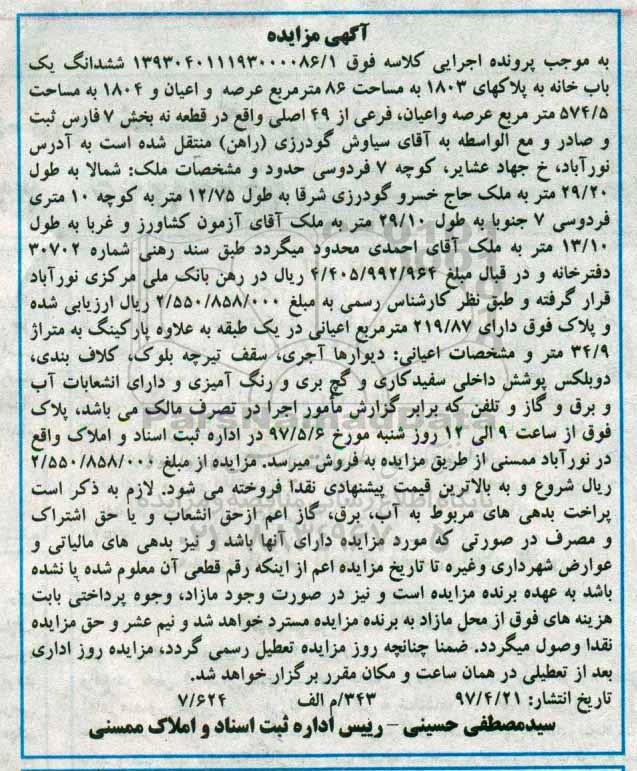 آگهی مزایده
به موجب پرونده اجرایی کلاسه فوق ۱۳۹۳۰۴۰۱۱۱۹۳۰۰۰۰۸۶/۱ ششدانگ یک
باب خانه به پلاکهای ۱۸۰۳ به مساحت ۸۶ مترمربع عرصه و اعیان و ۱۸۰۴ به مساحت
۵۷۴/۵ متر مربع عرصه واعیان، فرعی از ۴۹ اصلی واقع در قطعه نه بخش ۷ فارس ثبت
و صادر و مع الواسطه به آقای سیاوش گودرزی (راهن) منتقل شده است به آدرس
نورآباد، خ جهاد عشایر، کوچه ۷ فردوسی حدود و مشخصات ملک: شمالا به طول
۲۹/۲۰ متر به ملک حاج خسرو گودرزی شرقا به طول ۱۲/۷۵ متر به کوچه ۱۰ متری
فردوسی ۷ جنوبا به طول ۲۹/۱۰ متر به ملک آقای آزمون کشاورز و غربا به طول
۱۳/۱۰ متر به ملک آقای احمدی محدود میگردد طبق سند رهنی شماره ۳۰۷۰۲
دفترخانه و در قبال مبلغ ۴/۴۰۵/۹۹۲/۹۶۴ ریال در رهن بانک ملی مرکزی نورآباد
قرار گرفته و طبق نظر کارشناس رسمی به مبلغ ۲/۵۵۰/۸۵۸/۰۰۰ ریال ارزیابی شده
و پلاک فوق دارای ۲۱۹/۸۷ مترمربع اعیانی در یک طبقه به علاوه پارکینگ به متراژ
۳۴/۹ متر و مشخصات اعیانی: دیوارها آجری، سقف تیرچه بلوک، کلاف بندی،
دوبلکس پوشش داخلی سفیدکاری و گچ بری و رنگ آمیزی و دارای انشعابات آب
و برق و گاز و تلفن که برابر گزارش مأمور اجرا در تصرف مالک می باشد، پلاک
فوق از ساعت ۹ الی ۱۲ روز شنبه مورخ ۹۷/۵/۶ در اداره ثبت اسناد و املاک واقع
در نورآباد ممسنی از طریق مزایده به فروش میرسد. مزایده از مبلغ ۲/۵۵۰/۸۵۸/۰۰۰
ریال شروع و به بالاترین قیمت پیشنهادی نقدا فروخته می شود. لازم به ذکر است
پراخت بدهی های مربوط به آب، برق، گاز اعم ازحق انشعاب و یا حق اشتراک
و مصرف در صورتی که مورد مزایده دارای آنها باشد و نیز بدهی های مالیاتی و
عوارض شهرداری وغیره تا تاریخ مزایده اعم از اینکه رقم قطعی آن معلوم شده یا نشده
باشد به عهده برنده مزایده است و نیز در صورت وجود مازاد، وجوه پرداختی بابت
هزینه های فوق از محل مازاد به برنده مزایده مسترد خواهد شد و نیم عشر و حق مزایده
نقدا وصول میگردد. ضمنا چنانچه روز مزایده تعطیل رسمی گردد، مزایده روز اداری
بعد از تعطیلی در همان ساعت و مکان مقرر برگزار خواهد شد.
تاریخ انتشار: ۹۷/۴/۲۱ ۳۴۳/م الف ۷/۶۲۴
سیدمصطفی حسینی – رییس اداره ثبت اسناد و املاک ممسنی
ParsNamadData